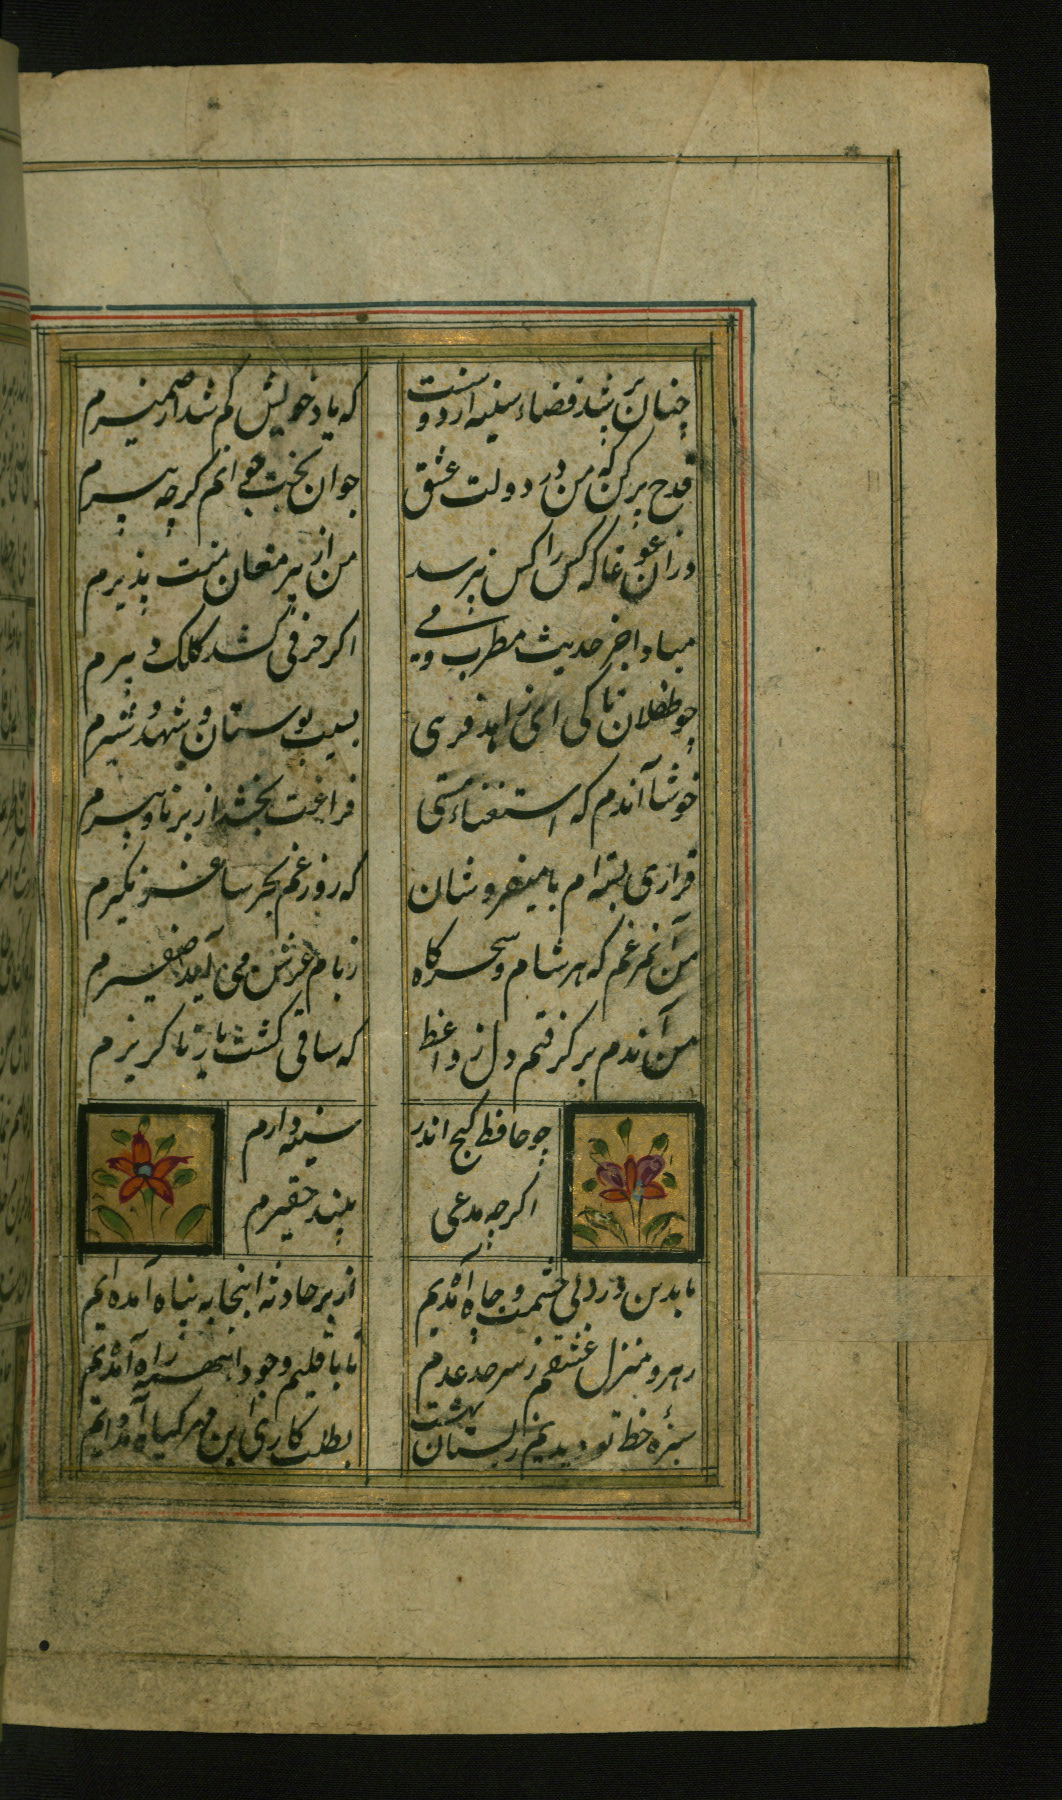 چنان پر شد فضاء سینه از دوست
که یاد خویش کم شد از ضمیرم
قدح پر کن که من در دولت عشق
جوان بخت جهانم کرچه پیرم
در ان غوغا که کس را کس نپرسد
من از پیر مغان منت پذیرم
مبادا جز حدیث مطرب و می
اکر حرفی کشد کلک دبیرم
چو طفلان تا کی ای زاهد فریبی
بسیب بوستان و شهد و شیرم
خوشا آندم که استغناء مستی
فراغت بخشد از برنا و پیرم
قراری بسته ام با میفروشان
که روز غم بجز ساغر نکیرم
من آن مرغم که هر شام و سحرکاه
ز بام عرش می آید صفیرم
من آندم برکرفتم دل ز واعظ
که ساقی کشت یار ناکریزم
چو حافظ کنج اندر
سینه دارم
اکرچه مدعی
بیند حقیرم
ما بدین در نه پی حشمت و جاه آمدیم
از بر حادثه اینجا به پناه آمده ایم
رهرو منزل عشقیم ز سر حد عدم
تا باقلیم وجود اینهمه راه آمدیم
سبزه خط تو دیدیم ز بستان بهشت
بطلب کاری این مهر کیاه آمده ایم